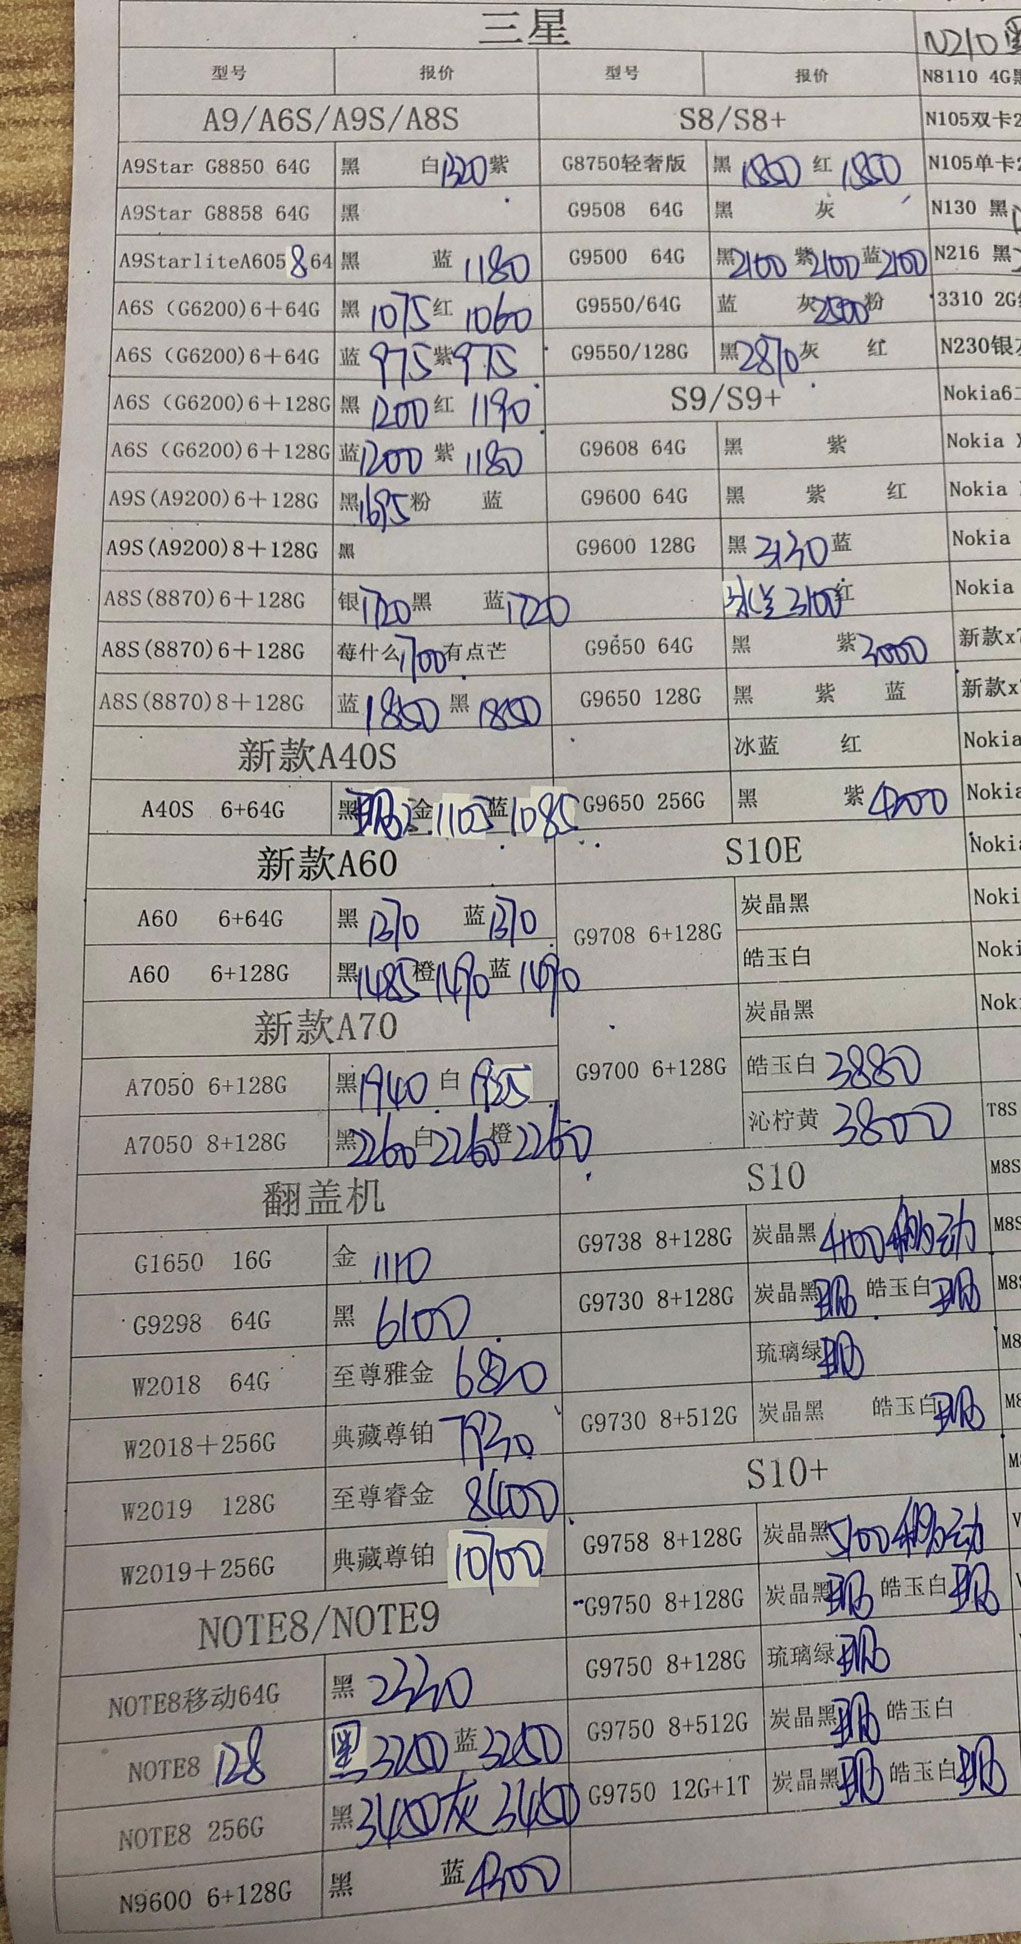 三星
N210 黑
型号 报价 型号 报价 N8110 4G黑
A9/A6S/A9S/A8S S8/S8+ N105双卡2
A9Star G8850 64G 黑 白1320紫 G8750轻奢版 黑 1850 红 1850 N105单卡2
A9Star G8858 64G 黑 G9508 64G 黑 灰 N130 黑
A9StarliteA6058 64 黑 蓝 1180 G9500 64G 黑2100 紫2100 蓝2100 N216 黑
A6S (G6200)6+64G 黑 1075 红 1060 G9550/64G 蓝 灰2500粉 3310 2G
A6S (G6200)6+64G 蓝 975 紫975 G9550/128G 黑2870灰 红 N230银
A6S (G6200)6+128G 黑 1200 红 1190 S9/S9+ Nokia6
A6S (G6200)6+128G 蓝1200 紫 1180 G9608 64G 黑 紫 Nokia
A9S(A9200)6+128G 黑1695粉 蓝 G9600 64G 黑 紫 红 Nokia
A9S(A9200)8+128G 黑 G9600 128G 黑 3130 蓝 Nokia
A8S(8870)6+128G 银1720黑 蓝1720 冰兰3100红 Nokia
A8S(8870)6+128G 莓什么1700有点芒 G9650 64G 黑 紫3000 新款x7
A8S(8870)8+128G 蓝 1850 黑 1850 G9650 128G 黑 紫 蓝 新款x7
新款A40S 冰蓝 红 Nokia
A40S 6+64G 黑 金1105蓝1085 G9650 256G 黑 紫4200 Nokia
新款A60 S10E Nokia
A60 6+64G 黑 1370 蓝1370 G9708 6+128G 炭晶黑 Noki
A60 6+128G 黑1485橙1490蓝1490 皓玉白 Noki
新款A70 炭晶黑 Noki
A7050 6+128G 黑1940 白1925 G9700 6+128G 皓玉白 3880
A7050 8+128G 黑2260白2260橙2260 沁柠黄 3800 T8S
翻盖机 S10 M8S
G1650 16G 金 1110 G9738 8+128G 炭晶黑 4100 移动 M8S
G9298 64G 黑 6100 G9730 8+128G 炭晶黑现 皓玉白现 M8S
W2018 64G 至尊雅金 6820 琉璃绿现 M8
W2018+256G 典藏尊铂 7930 G9730 8+512G 炭晶黑 皓玉白现 M8
W2019 128G 至尊睿金 8400 S10+
W2019+256G 典藏尊铂 10700 G9758 8+128G 炭晶黑5100移动
NOTE8/NOTE9 G9750 8+128G 炭晶黑现 皓玉白现
NOTE8移动64G 黑 2330 G9750 8+128G 琉璃绿现
NOTE8 128 黑3250 蓝3250 G9750 8+512G 炭晶黑现 皓玉白
NOTE8 256G 黑3450灰 3450 G9750 12G+1T 炭晶黑现 皓玉白现
N9600 6+128G 黑 蓝4300